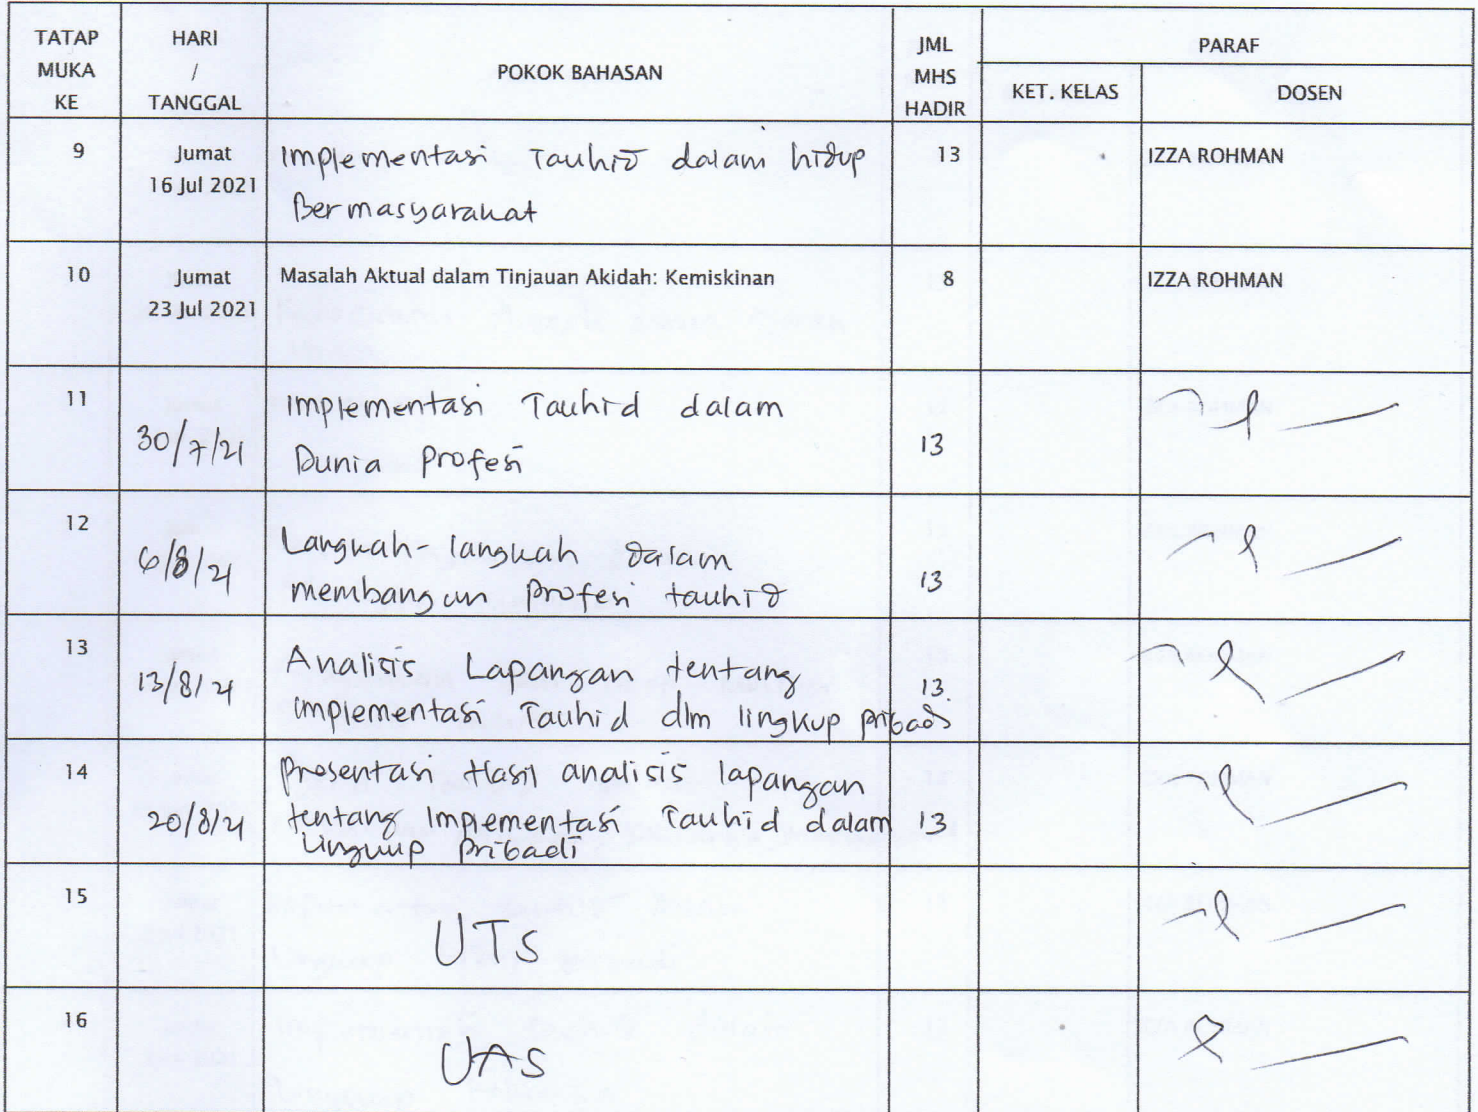 TATAP MUKA KE
HARI / TANGGAL
POKOK BAHASAN
JML MHS HADIR
PARAF
KET. KELAS
DOSEN
9
Jumat
16 Jul 2021
Implementasi Tauhid dalam hidup
Bermasyarakat
13
IZZA ROHMAN
10
Jumat
23 Jul 2021
Masalah Aktual dalam Tinjauan Akidah: Kemiskinan
8
IZZA ROHMAN
11
30/7/21
Implementasi Tauhid dalam
Dunia Profesi
13
12
6/8/21
Langkah-langkah dalam
membangun profesi tauhid
13
13
13/8/21
Analisis Lapangan tentang
implementasi Tauhid dlm lingkup pribadi
13
14
20/8/21
Presentasi Hasil analisis lapangan
tentang Implementasi Tauhid dalam
Lingkup Pribadi
13
15
UTS
16
UAS